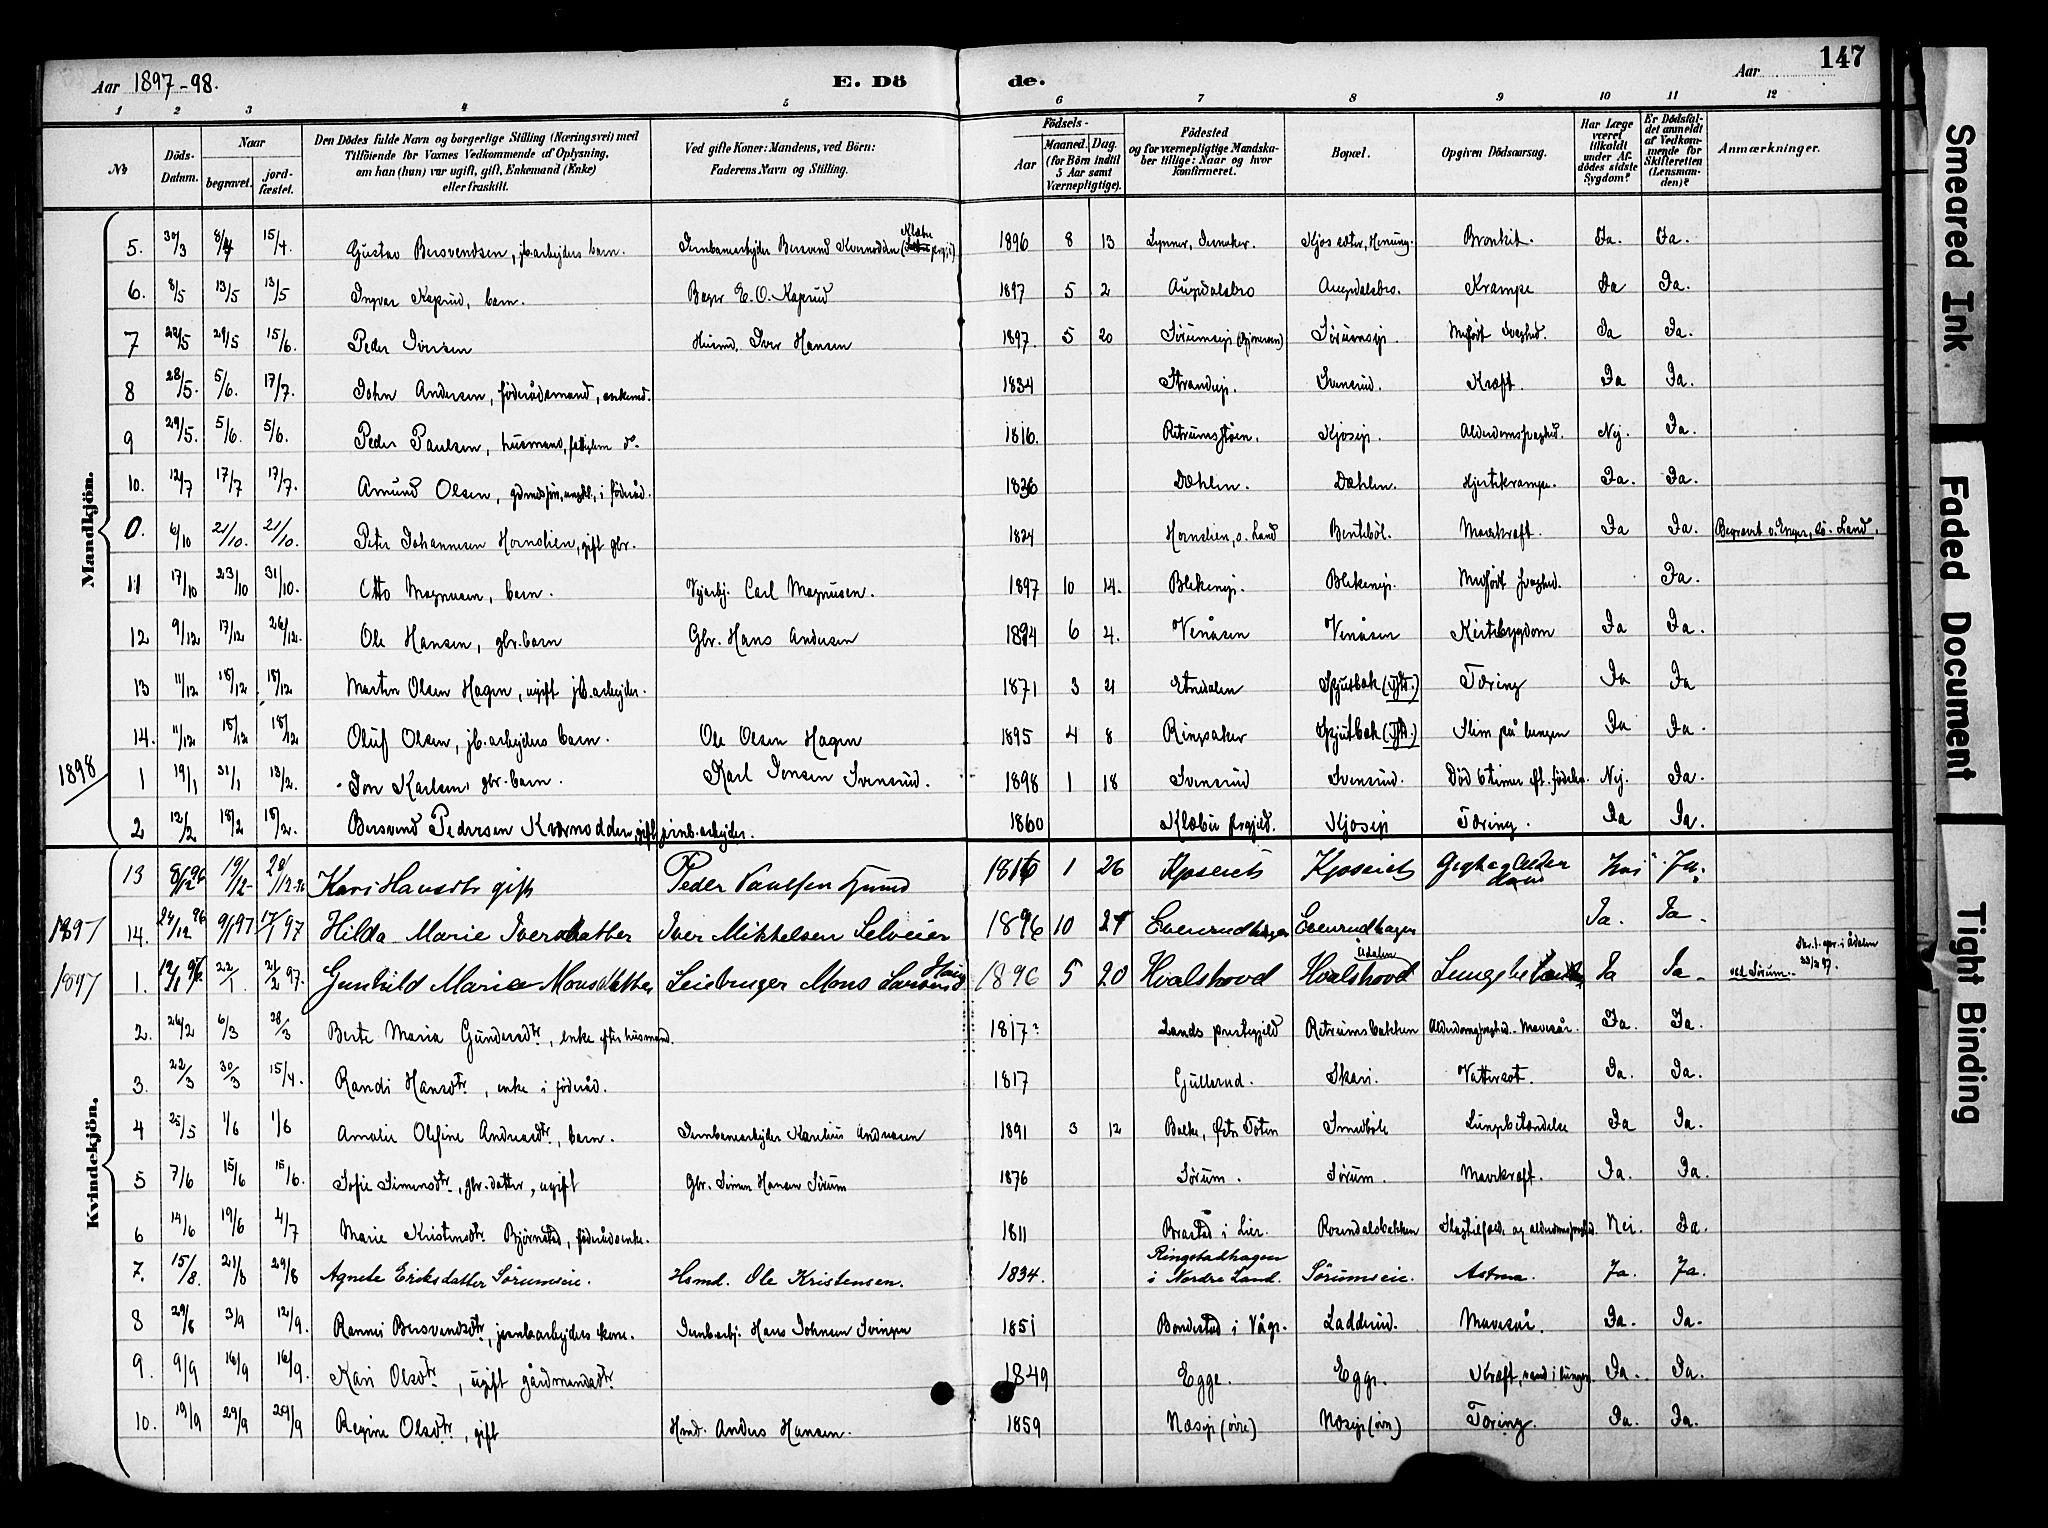 147
Aar 1897-98.
E. Dö
de.
Aar
1 2 3 4 5 6 7 8 9 10 11 12
№
Döds-Datum.
Naar
begravet.
jord-fæstet.
Den Dödes fulde Navn og borgerlige Stilling (Næringsvei) med
Tilföiende for Voxnes Vedkommende af Oplysning,
om han (hun) var ugift, gift, Enkemand (Enke)
eller fraskilt.
Ved gifte Koner: Mandens, ved Börn:
Faderens Navn og Stilling.
Födsels-
Aar
Maaned. Dag.
(for Börn indtil
5 Aar samt
Værnepligtige).
Födested
og for værnepligtige Mandska-
ber tillige: Naar og hvor
konfirmeret.
Bopæl.
Opgiven Dödsaarsag.
Har Læge
været
tilkaldt
under Af-
dödes sidste
Sygdom?
Er Dödsfal-
det anmeldt
af Vedkom-
mende for
Skifteretten
(Lensman-
den)?
Anmærkninger.
Mandkjön.
5. 30/3 8/4 15/4. Gustav Bersvendsen, jb.arbejders barn. Jernbanearbejder Bersvend Kvernodden (Klæbu prgj.) 1896 8 13 Lynner, Jevnaker. Bronkit. Ja. Ja.
6. 8/5 13/5 13/5 Ingvar Kaprud, barn. Bager E. O. Kaprud 1897 5 2 Augedalsbro Augedalsbro. Krampe Ja Ja.
7 22/5 29/5 15/6. Peder Iversen Husmd. Iver Hansen 1897. 5 20 Sørumseje Sørumseje. Medfødt svaghed. Ja Ja.
8 28/5. 5/6. 17/7. John Andersen, föderådsmand, enkemd. 1834 Strandeje. Svensrud. Kræft. Ja Ja.
9 29/5. 5/6. 5/6. Peder Paulsen, husmand, 1816. Kjoseje. Alderdomssvaghed. Nej. Ja.
10. 12/7 17/7 17/7. Amund Olsen, i föderåd. 1836 Dæhlen. Dæhlen. Hjertekrampe. Ja. Ja.
0. 6/10 21/10. 21/10. Peter Johannesen Hornslien, gift gbr. 1824 Hornslien, s. Land Benteböl. Mavekræft. Ja Ja. Begravet v. Enger, Sö. Land.
11 17/10 23/10 31/10. Otto Magnusen, barn. Vejarbj. Carl Magnusen. 1897 10 14. Blekeneje. Blekeneje. Medfödt svaghed. Ja.
12 9/12 17/12 26/12. Ole Hansen, gbr. barn Gbr. Hans Andersen 1894 6 4. Venåsen Venåsen Kirtelsygdom Ja Ja.
13 11/12 18/12 18/12 Martin Olsen Hagen, ugift jb.arbejder. 1871 3 21 Etnedalen Spjutbæk Tæring Ja Ja
14. 11/12 18/12 18/12 Oluf Olsen, jb.arbejders barn. Ole Olsen Hagen 1895 4 8 Ringsaker Spjutbæk Slim på lungen Ja Ja.
1898
1 19/1 31/1 13/2. Jon Karlsen, gbr. barn. Karl Jonsen Svensrud. 1898 1 18 Svensrud Svensrud. Död 6 timer eft. födslen. Nej. Ja.
2 12/2 18/2 18/2. Bersvend Pedersen Kværnodden, gift jernb.arbejder. 1860 Klæbu prgjeld. Kjoseje Tæring. Ja Ja.
Kvindekjön.
13 8/12 96 19/12- Kari Hansdtr gift Peder Paulsen 1816 1 26 Kjoseiet Kjoseiet Gigt og Alderdom Nei Ja.
1897 14. 24/12 96 9/1 97 17/1 97 Hilda Marie Iversdatter Iver Mikkelsen Selveier 1896 10 24 Evenrudhagen Evenrudhagen Ja. Ja
1897 1. 22/1. 21/2 97. Gunhild Maria Monsdatter Leiebruger Mons Larsen Haug 1896 5 20 Hvalshovd Hvalshovd Ådalen Lungebetændelse Ja Ja. ved Sørum.
2. 26/2 6/3 28/3 Berte Maria Gundersdtr, enke efter husmand. 1817? Lands prestegjeld Retrumsbakken Alderdomssvaghed. Mavesår. Ja. Ja.
3. 22/3 30/3 15/4. Randi Hansdtr, enke i föderåd. 1817 Gullerud. Skari. Vattersot. Ja. Ja.
4 25/5 1/6 1/6 Amalie Olefine Andreasdtr, barn. Jernbanearbejder Karelius Andreasen 1891 3 12 Balke, Østr. Toten Smedböle Lungebetændelse Ja Ja.
5 7/6 15/6 15/6. Sofie Simensdtr, gbr. datter, ugift Gbr. Simen Hansen Sørum 1876 Sørum. Sørum. Mavekræft. Ja. Ja.
6 14/6 19/6 4/7 Marie Kristensdtr. Bjørnstad, föderådsenke. 1811 Brastad i Lier. Rosendalsbakken Slagtilfæld. og alderdomssvaghed. Nei. Ja.
7. 15/8. 21/8 29/8 Agnete Eriksdatter Sørumseie. Hsmd. Ole Kristensen. 1834. Ringstadhagen i Nordre Land. Sørumseie. Astma. Ja. Ja.
8 29/8 3/9 12/9. Rannei Bersvendsdtr, jernbarbejders kone. Jernbarbj. Hans Johnsen Svingen 1851 Bondestad i Vågå. Ladderud. Mavesår. Ja. Ja.
9. 9/9 16/9 16/9. Kari Olsdtr, ugift gårdmandsdtr 1849 Egge. Egge. Kræft, vand i lungen. Ja. Ja.
10. 19/9 29/9 29/9 Regine Olsdtr, gift Hmd. Anders Hansen. 1859 Næseje (övre) Næseje (övre) Tæring. Ja. Ja.
Smeared Ink
Faded Document
Tight Binding